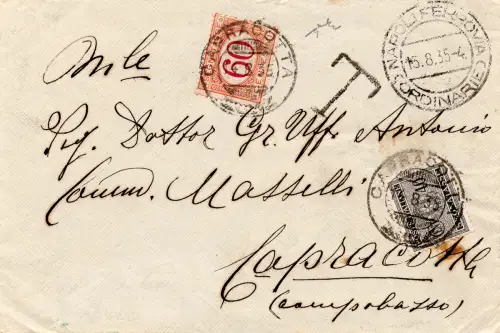 CAPRACOTTA
60
T
NAPOLI FERROVIA
15.8.35-4
(ORDINARIE)
Sig. Dottor Gr. Uff. Antonio
Comm. Masselli
CAPRACOTTA
Capracotta
(Campobasso)